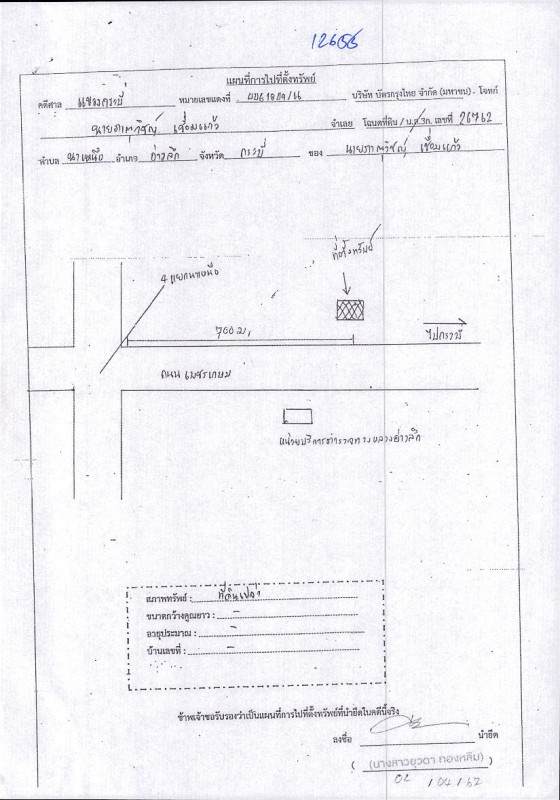 12666
แผนที่การไปที่ตั้งทรัพย์
คดีศาล แขวงกระบี่ หมายเลขแดงที่ บริษัท บัตรกรุงไทย จำกัด (มหาชน) - โจทก์
นายภาณุวิชญ์ เชื่อมแก้ว จำเลย โฉนดที่ดิน / น.ส.3ก. เลขที่ 26762
ตำบล นาเหนือ อำเภอ อ่าวลึก จังหวัด กระบี่ ของ นายภาณุวิชญ์ เชื่อมแก้ว
ที่ตั้งทรัพย์
4 แยกนาเหนือ
700 ม.
ไปกระบี่
ถนน เพชรเกษม
หน่วยบริการตำรวจทางหลวงอ่าวลึก
สภาพทรัพย์ : ที่ดินเปล่า
ขนาดกว้างคูณยาว : -
อายุประมาณ : -
บ้านเลขที่ : -
ข้าพเจ้าขอรับรองว่าเป็นแผนที่การไปที่ตั้งทรัพย์ที่นำยึดในคดีนี้จริง
ลงชื่อ นำยึด
( (นางสาวยุวดา ทองหลิม) )
02 / 04 / 62